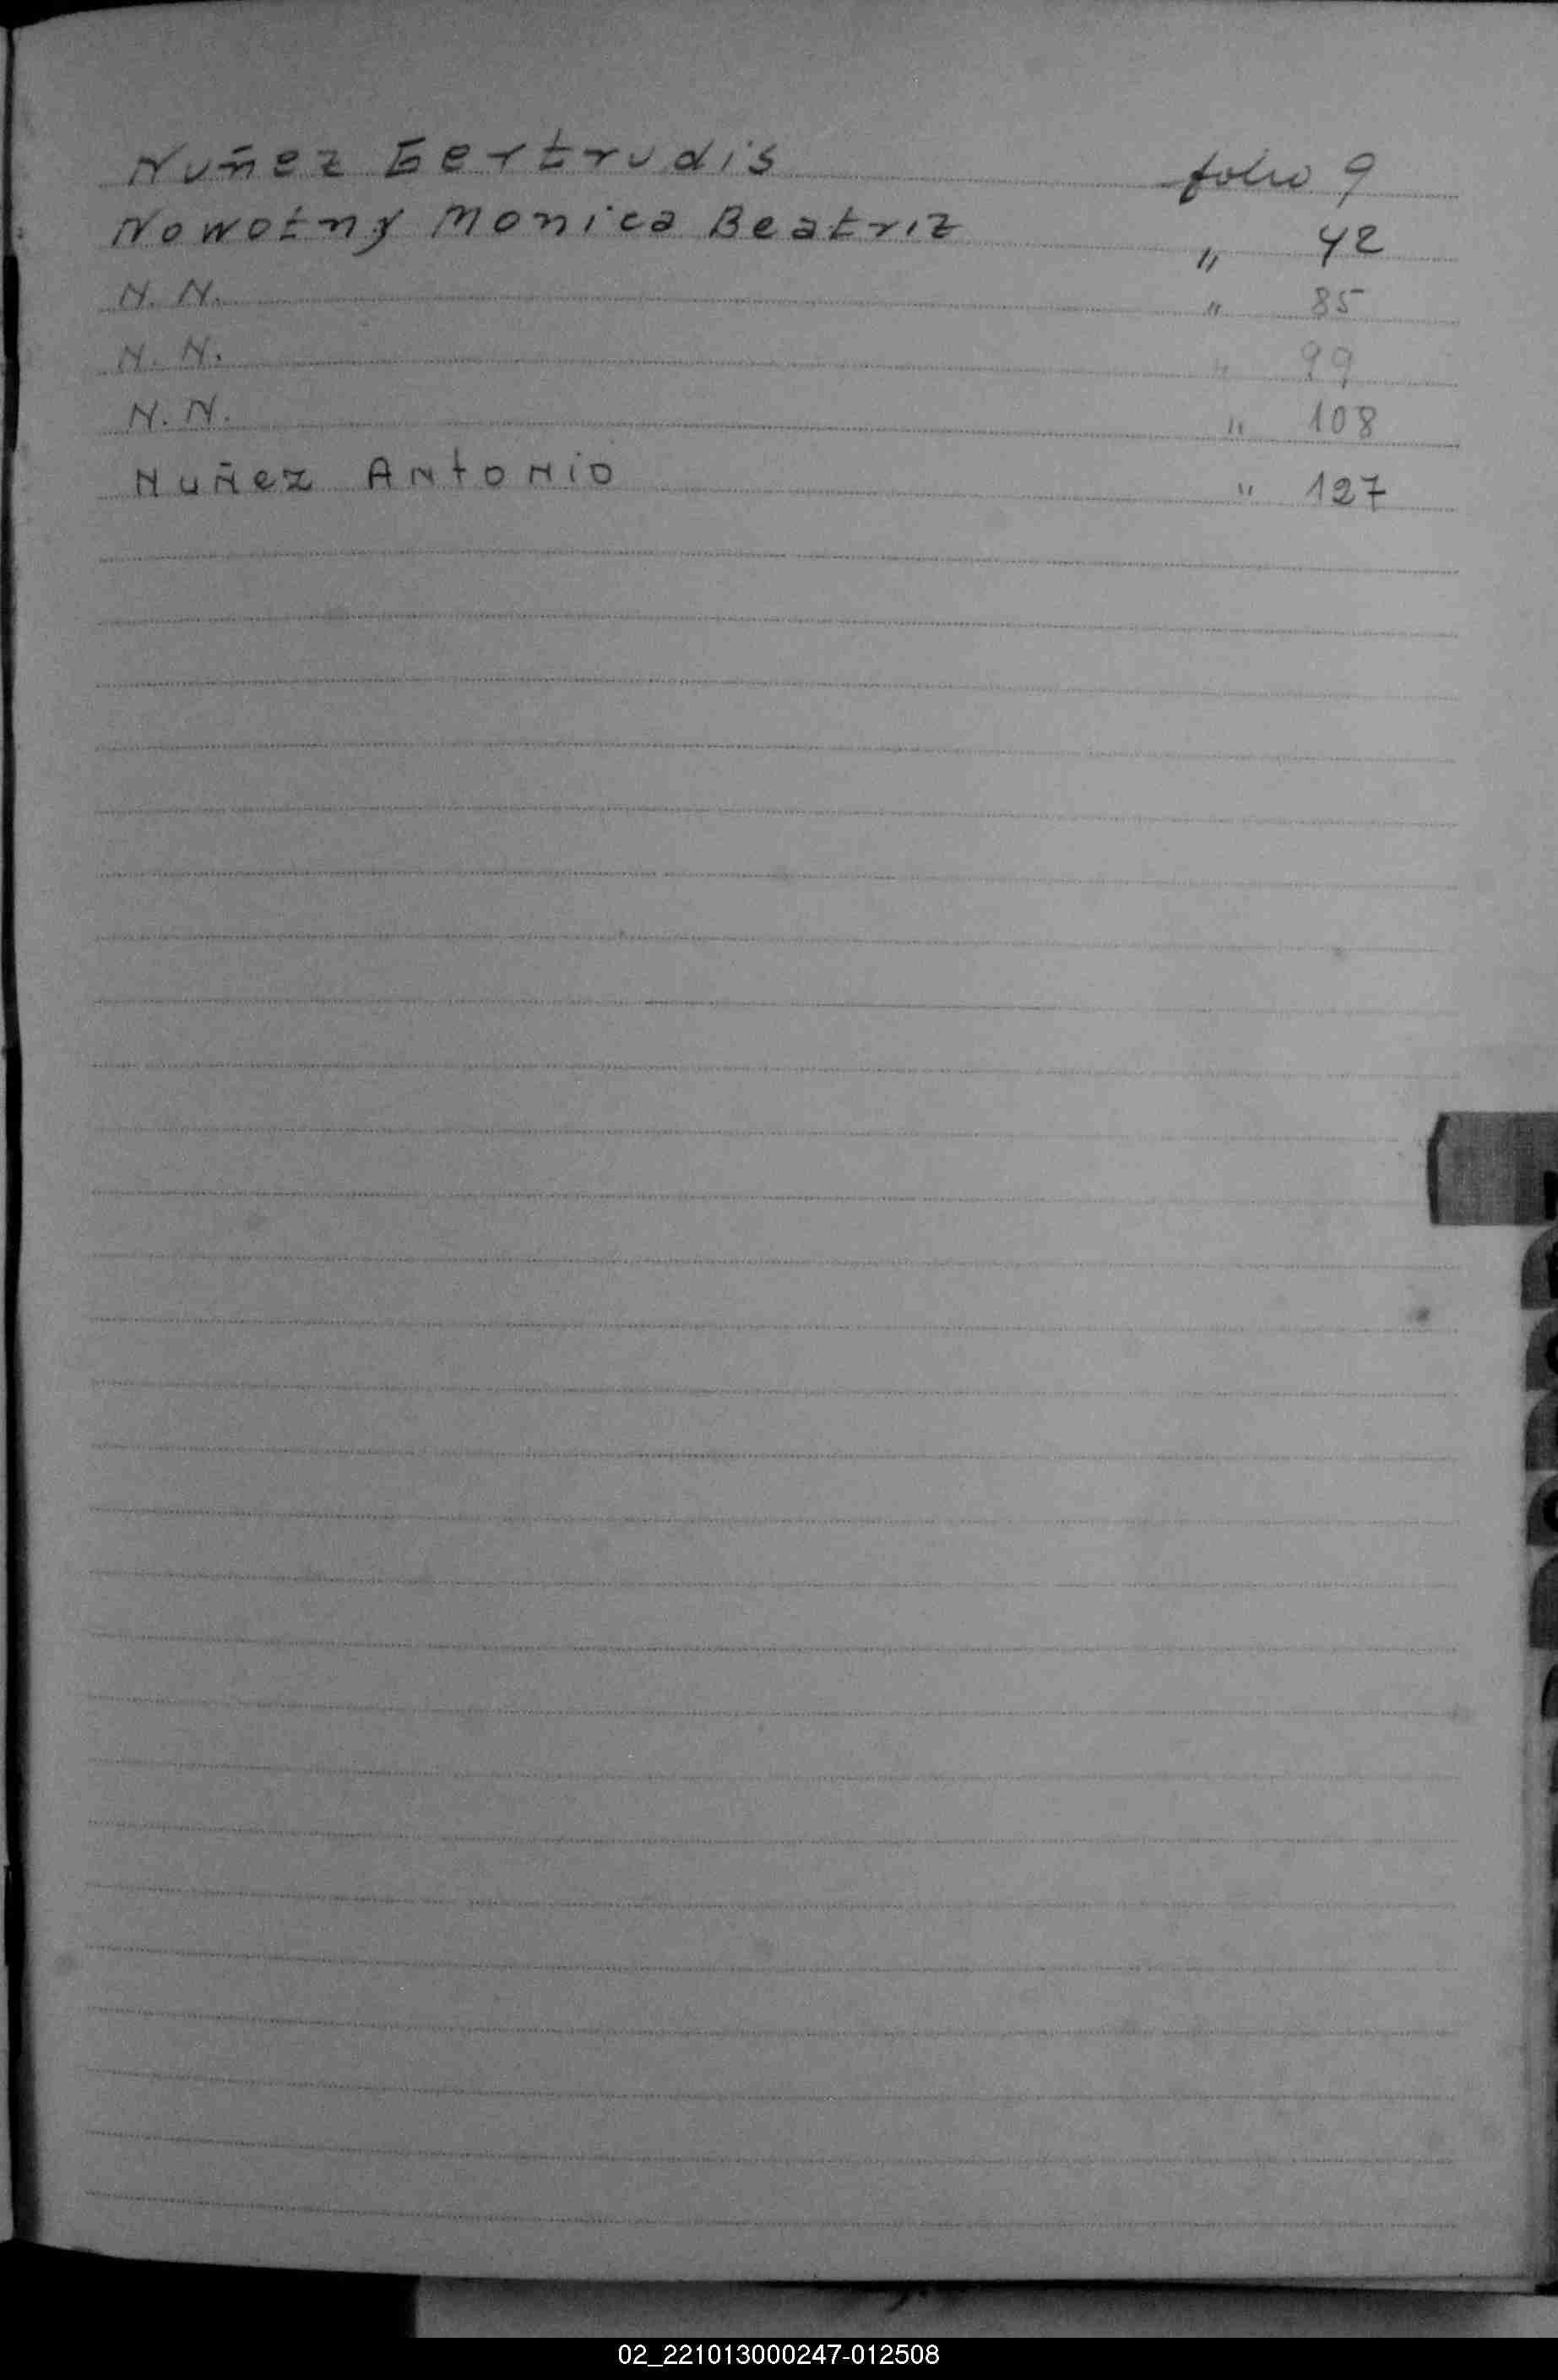 Nuñez Gertrudis folio 9
Nowotny Monica Beatriz " 42
N. N. " 85
N. N. " 99
N. N. " 108
Nuñez Antonio " 127
02_221013000247-012508